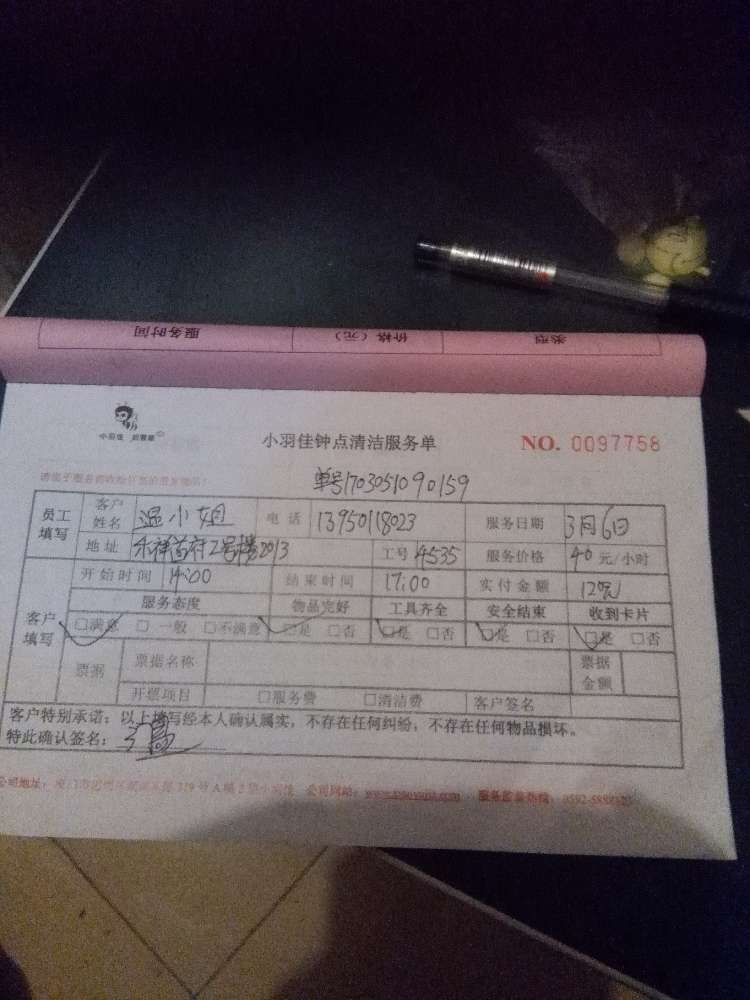 服务时间 价格（元） 类型
小羽佳
小羽佳钟点清洁服务单 NO. 0097758
单号170305109 0159
员工填写 客户姓名 温小姐 电话 13950118023 服务日期 3月6日
地址 禾祥首府2号楼2013 工号 4535 服务价格 40 元/小时
开始时间 14:00 结束时间 17:00 实付金额 120元
客户填写 服务态度 物品完好 工具齐全 安全结束 收到卡片
□满意 □一般 □不满意 □是 □否 □是 □否 □是 □否 □是 □否
票据 票据名称 票据金额
开票项目 □服务费 □清洁费 客户签名
客户特别承诺：以上填写经本人确认属实，不存在任何纠纷，不存在任何物品损坏。
特此确认签名： 温
公司地址： 公司网站： 服务监督热线：